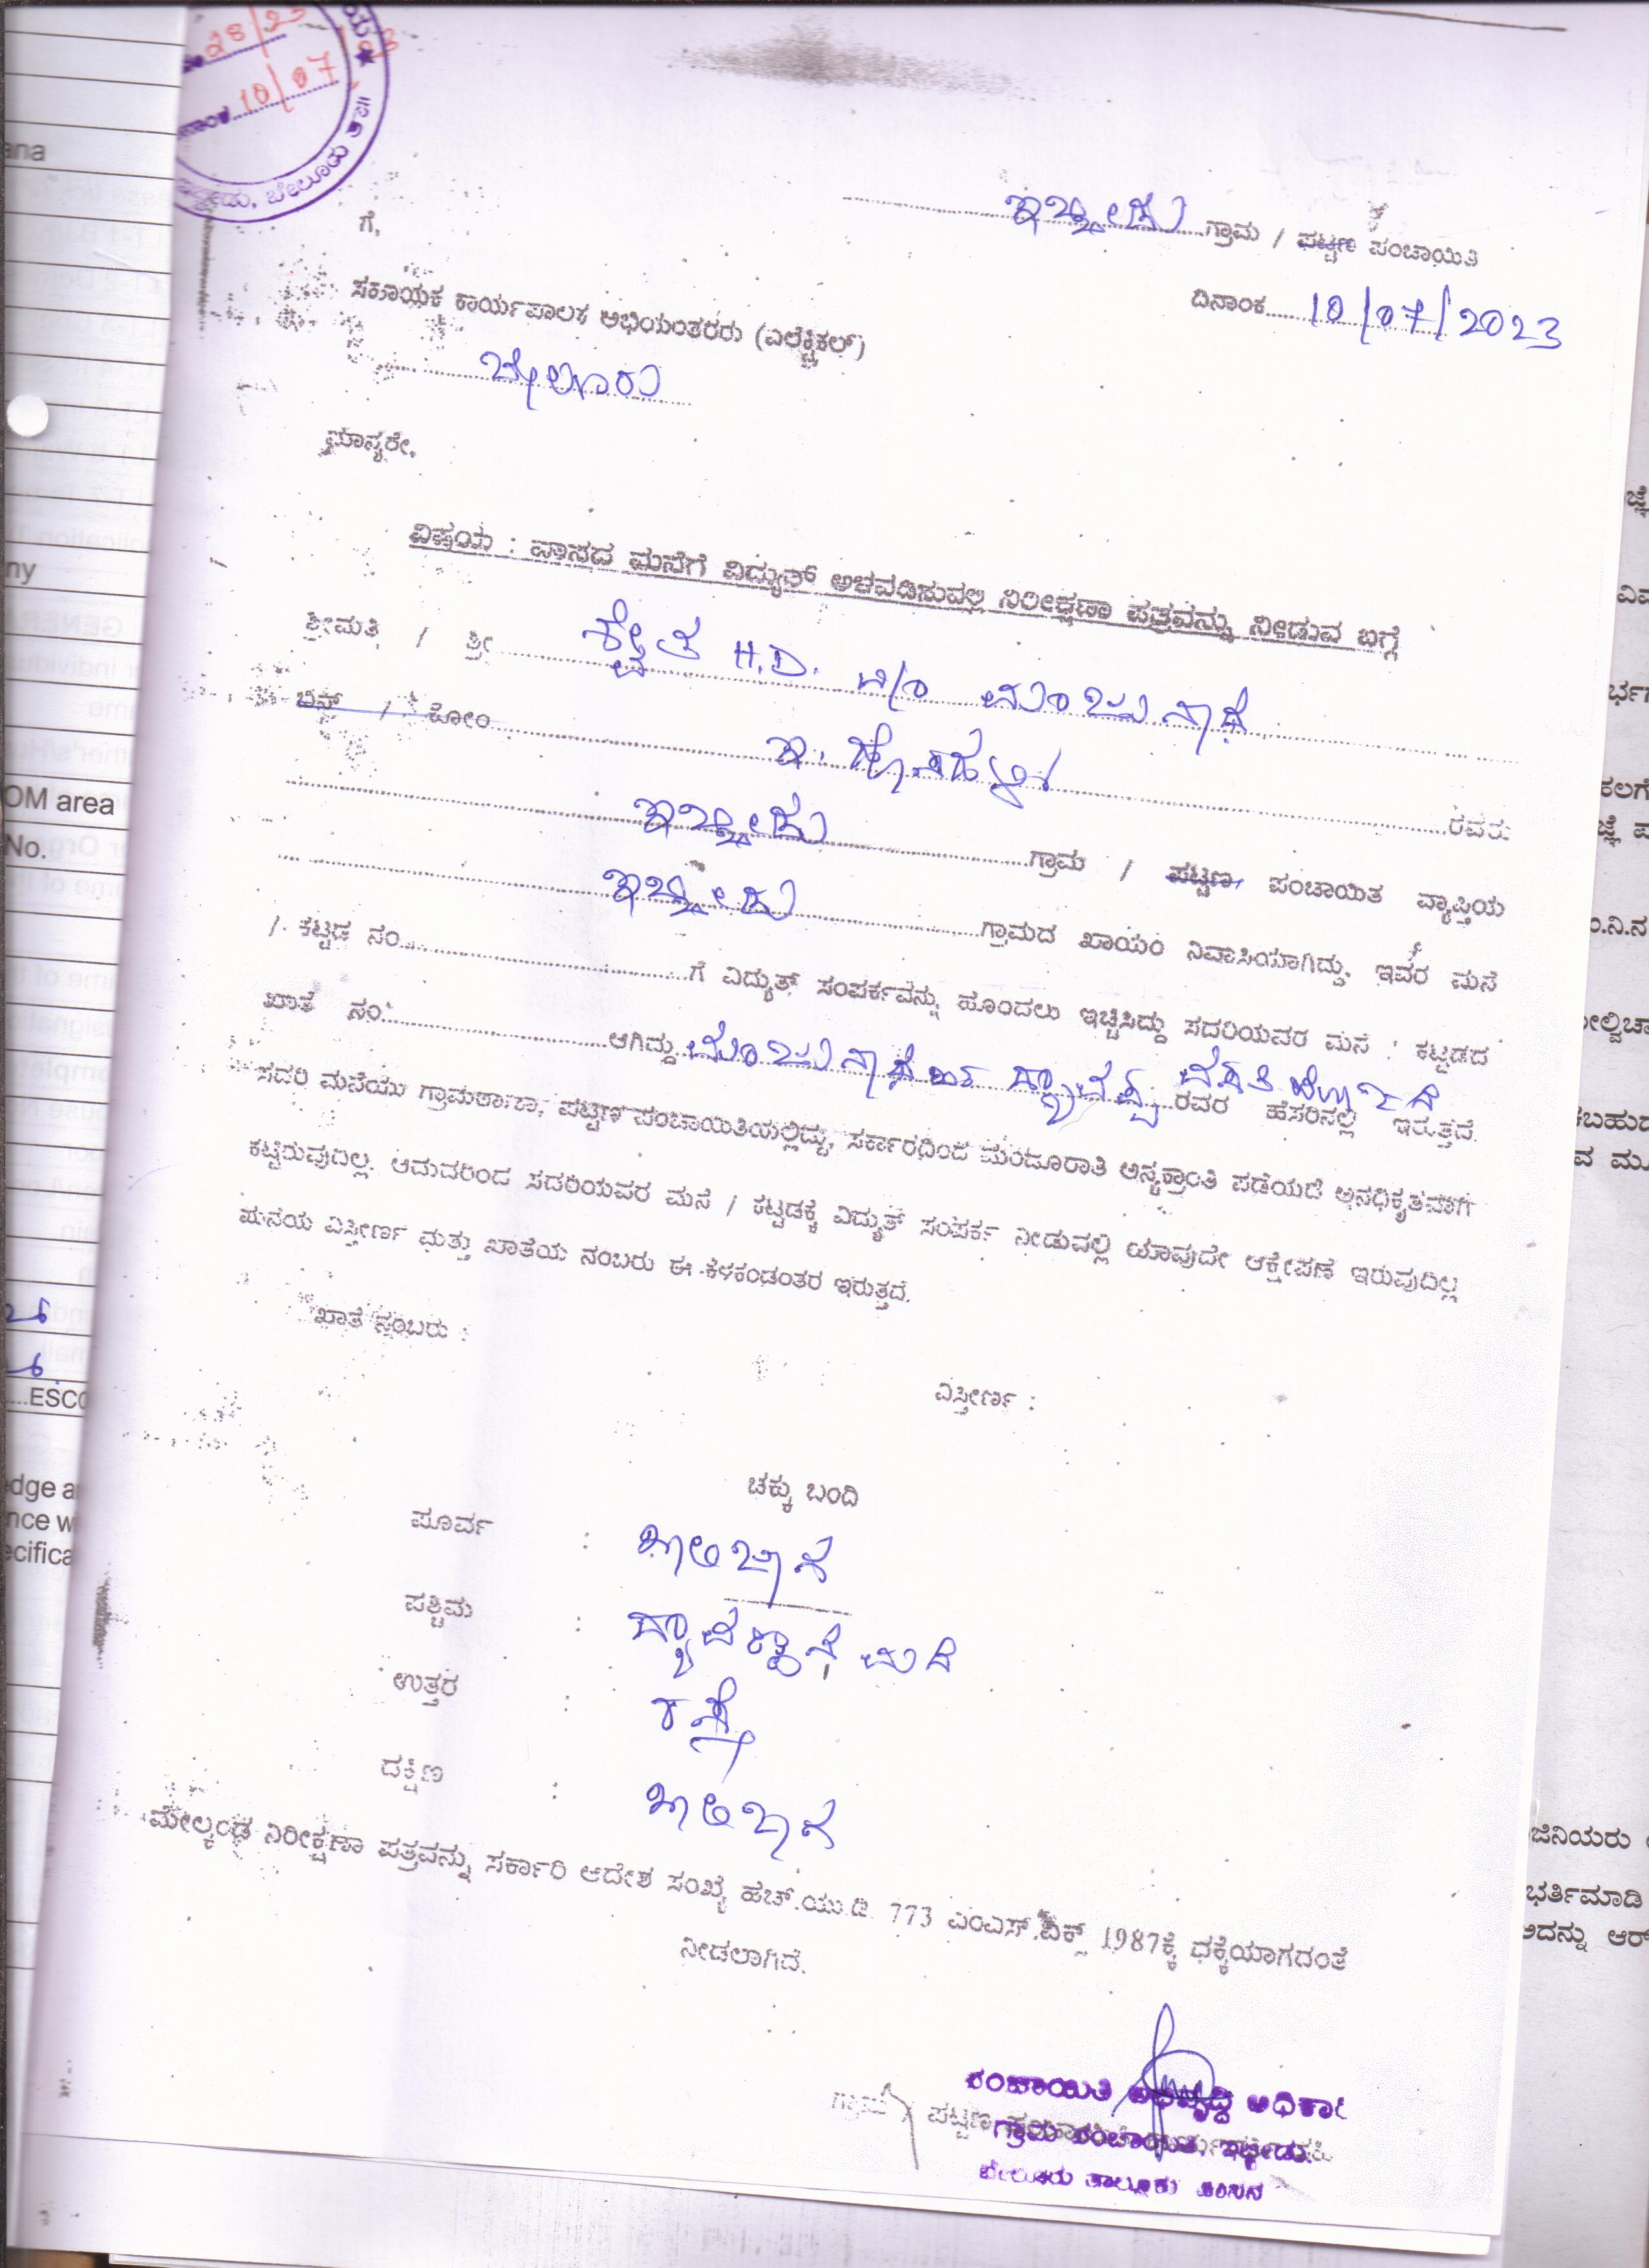 28/23
ನಾಂಕ 10/07
ಬೇಲೂರು ತಾ॥
ಇಬ್ಬೀಡು ಗ್ರಾಮ / ಪಟ್ಟಣ ಪಂಚಾಯಿತಿ
ಗೆ,
ದಿನಾಂಕ 10/07/2023
ಸಹಾಯಕ ಕಾರ್ಯಪಾಲಕ ಅಭಿಯಂತರರು (ಎಲೆಕ್ಟ್ರಿಕಲ್)
ಬೇಲೂರು
ಮಾನ್ಯರೇ,
ವಿಷಯ : ವಾಸದ ಮನೆಗೆ ವಿದ್ಯುತ್ ಅಳವಡಿಸುವಲ್ಲಿ ನಿರೀಕ್ಷಣಾ ಪತ್ರವನ್ನು ನೀಡುವ ಬಗ್ಗೆ
ಶ್ರೀಮತಿ / ಶ್ರೀ ಶ್ವೇತ H.D. W/o ಮಂಜುನಾಥ
ಬಿನ್ / ಕೋಂ ಇ. ಹೊಸಹಳ್ಳಿ ರವರು
ಇಬ್ಬೀಡು ಗ್ರಾಮ / ಪಟ್ಟಣ, ಪಂಚಾಯಿತ ವ್ಯಾಪ್ತಿಯ
ಇಬ್ಬೀಡು ಗ್ರಾಮದ ಖಾಯಂ ನಿವಾಸಿಯಾಗಿದ್ದು, ಇವರ ಮನೆ
/ ಕಟ್ಟಡ ನಂ. ಗೆ ವಿದ್ಯುತ್ ಸಂಪರ್ಕವನ್ನು ಹೊಂದಲು ಇಚ್ಛಿಸಿದ್ದು ಸದರಿಯವರ ಮನೆ : ಕಟ್ಟಡದ
ಖಾತೆ ನಂ. ಆಗಿದ್ದು ಮಂಜುನಾಥ ರವರ ಹೆಸರಿನಲ್ಲಿ ಇರುತ್ತದೆ.
ಸದರಿ ಮನೆಯು ಗ್ರಾಮಠಾಣಾ, ಪಟ್ಟಣ ಪಂಚಾಯಿತಿಯಲ್ಲಿದ್ದು, ಸರ್ಕಾರದಿಂದ ಮಂಜೂರಾತಿ ಅನ್ಯಕ್ರಾಂತಿ ಪಡೆಯದೆ ಅನಧಿಕೃತವಾಗಿ
ಕಟ್ಟಿರುವುದಿಲ್ಲ. ಆದುದರಿಂದ ಸದರಿಯವರ ಮನೆ / ಕಟ್ಟಡಕ್ಕೆ ವಿದ್ಯುತ್ ಸಂಪರ್ಕ ನೀಡುವಲ್ಲಿ ಯಾವುದೇ ಆಕ್ಷೇಪಣೆ ಇರುವುದಿಲ್ಲ
ಮನೆಯ ವಿಸ್ತೀರ್ಣ ಮತ್ತು ಖಾತೆಯ ನಂಬರು ಈ ಕೆಳಕಂಡಂತರ ಇರುತ್ತದೆ.
ಖಾತೆ ನಂಬರು :
ವಿಸ್ತೀರ್ಣ :
ಚಕ್ಕು ಬಂದಿ
ಪೂರ್ವ : ಖಾಲಿಜಾಗ
ಪಶ್ಚಿಮ : ಮನೆ
ಉತ್ತರ : ರಸ್ತೆ
ದಕ್ಷಿಣ : ಖಾಲಿಜಾಗ
ಮೇಲ್ಕಂಡ ನಿರೀಕ್ಷಣಾ ಪತ್ರವನ್ನು ಸರ್ಕಾರಿ ಆದೇಶ ಸಂಖ್ಯೆ ಹೆಚ್.ಯು.ಡಿ. 773 ಎಂಎನ್.ಎಕ್ಸ್ 1987ಕ್ಕೆ ಧಕ್ಕೆಯಾಗದಂತೆ
ನೀಡಲಾಗಿದೆ.
ಪಂಚಾಯಿತಿ ಅಭಿವೃದ್ಧಿ ಅಧಿಕಾ
ಗ್ರಾಮ ಪಂಚಾಯಿತಿ, ಇಬ್ಬೀಡು.
ಬೇಲೂರು ತಾಲ್ಲೂಕು ಹಾಸನ
OM area
No.